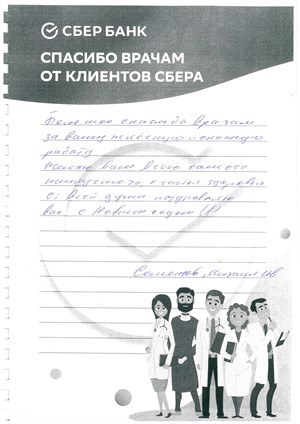 СБЕР БАНК
СПАСИБО ВРАЧАМ
ОТ КЛИЕНТОВ СБЕРА
Большое спасибо врачам
за вашу
работу
Желаю вам всего самого
наилучшего, счастья здоровья
От всей души поздравляю
вас с Новым годом!!!
Михаил Ив